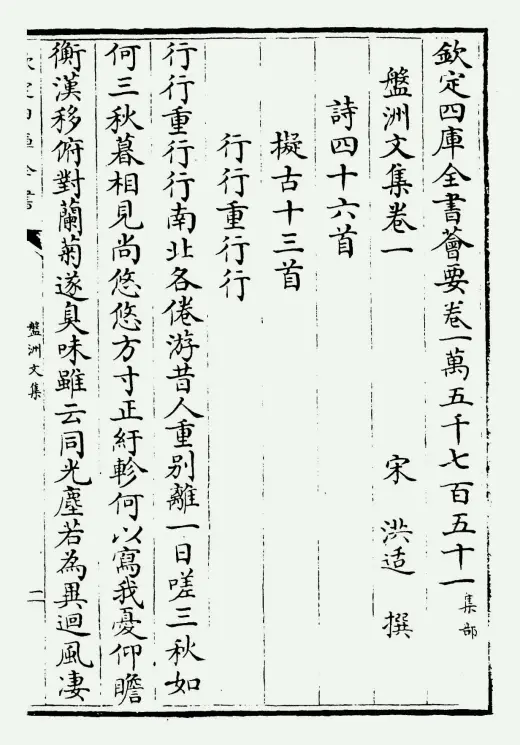 欽定四庫全書薈要卷一萬五千七百五十一 集部
盤洲文集卷一 宋 洪适 撰
詩四十六首
擬古十三首
行行重行行
行行重行行南北各倦游昔人重別離一日嗟三秋如
何三秋暮相見尚悠悠方寸正紆軫何以寫我憂仰瞻
衡漢移俯對蘭菊遂臭味雖云同光塵若為異迴風淒
欽定四庫全書
盤洲文集
二